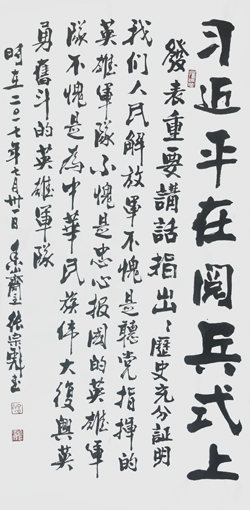 习近平在阅兵式上
發表重要講話指出:歷史充分証明
我们人民解放军不愧是聽党指揮的
英雄軍隊不愧是忠心报國的英雄軍
隊不愧是為中華民族伟大復興英
勇奮斗的英雄軍隊
時在二〇一七年七月卅一日 張宗彪